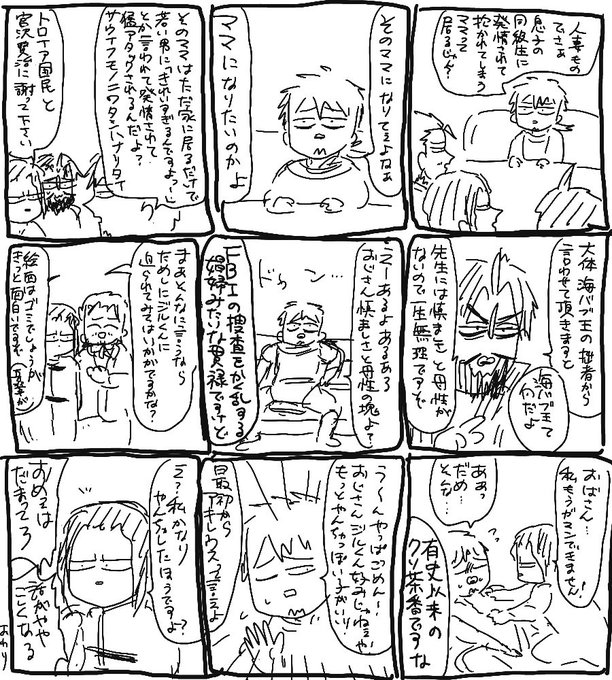 人妻もの
でさぁ
息子の
同級生に
発情されて
抱かれてしまう
ママって
居るじゃん？
そのママになりてぇよなぁ
ママになりたいのかよ
そのママはただ家に居るだけで
若い男に「きれいすぎるんですよっ…」
とか言われて発情されて
猛アタックされるんだよ？
サウイフモノニワタシハナリタイ
トロイア国民と
宮沢賢治に謝って下さい
大体海バブ王の拙者から
言わせて頂きますと
先生には慎ましさと母性が
ないので一生無理ですぞ
海バブ王て
何だよ
えーあるよあるある
おじさん慎ましさと母性の塊よ？
ドゥン…
FBIの捜査をかく乱する
娼婦みたいな貫禄ですけど
まぁそんなに言うなら
ためしにジルくんに
迫られてみてはいかがですかな？
絵面はゴミでしょうが
きっと面白いですぞ
おばさん…
私もうガマンできません！
ああっ
だめ
そんな…
有史以来の
クソ茶番ですな
う〜んやっぱごめん！
おじさんジルくん好みじゃねぇや
もっとやんちゃっぽい子がいい！
最初から
そう言えよ
え？私かなり
やんちゃしたほうですよ？
おめぇは
だまってろ
話がやや
こしくなる
おわり